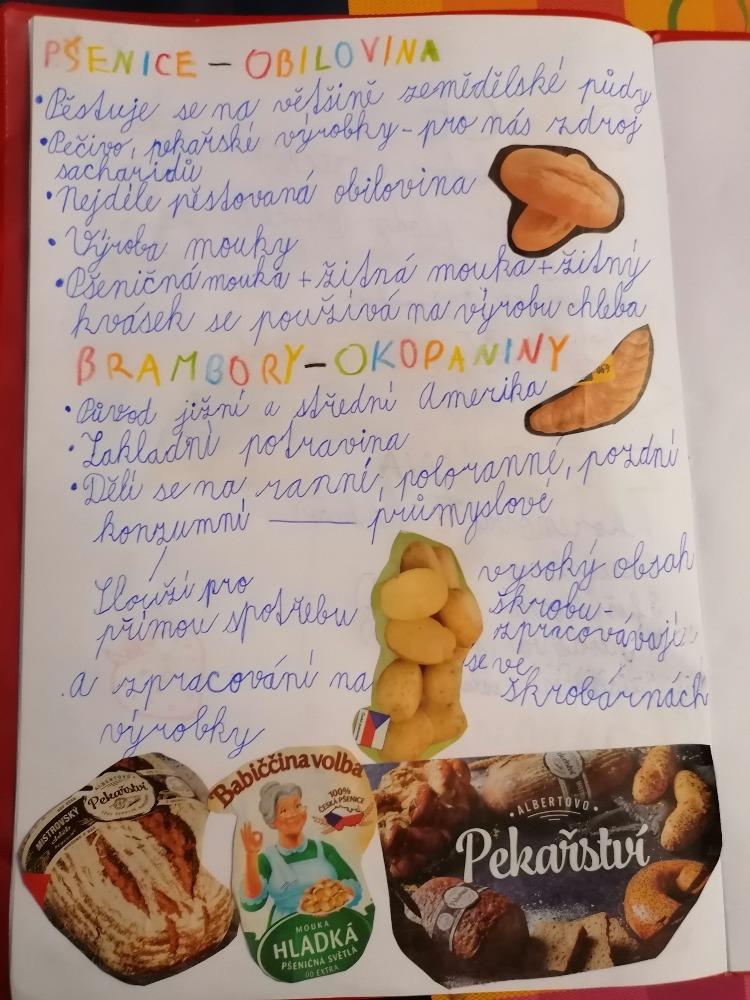 PŠENICE – OBILOVINA
• Pěstuje se na většině zemědělské půdy
• Pečivo, pekařské výrobky – pro nás zdroj
sacharidů
• Nejdéle pěstovaná obilovina
• Výroba mouky
• Pšeničná mouka + žitná mouka + žitný
kvásek se používá na výrobu chleba
BRAMBORY – OKOPANINY
• Původ jižní a střední Amerika
• Základní potravina
• Dělí se na ranné, poloranné, pozdní
konzumní — průmyslové
Slouží pro
přímou spotřebu
a zpracování na
výrobky
vysoký obsah
škrobu -
zpracovávají
se ve
škrobárnách
MISTROVSKÝ
chléb
ALBERTOVO
Pekařství
Babiččina volba
100%
ČESKÁ PŠENICE
MOUKA
HLADKÁ
PŠENIČNÁ SVĚTLÁ
00 EXTRA
ALBERTOVO
Pekařství